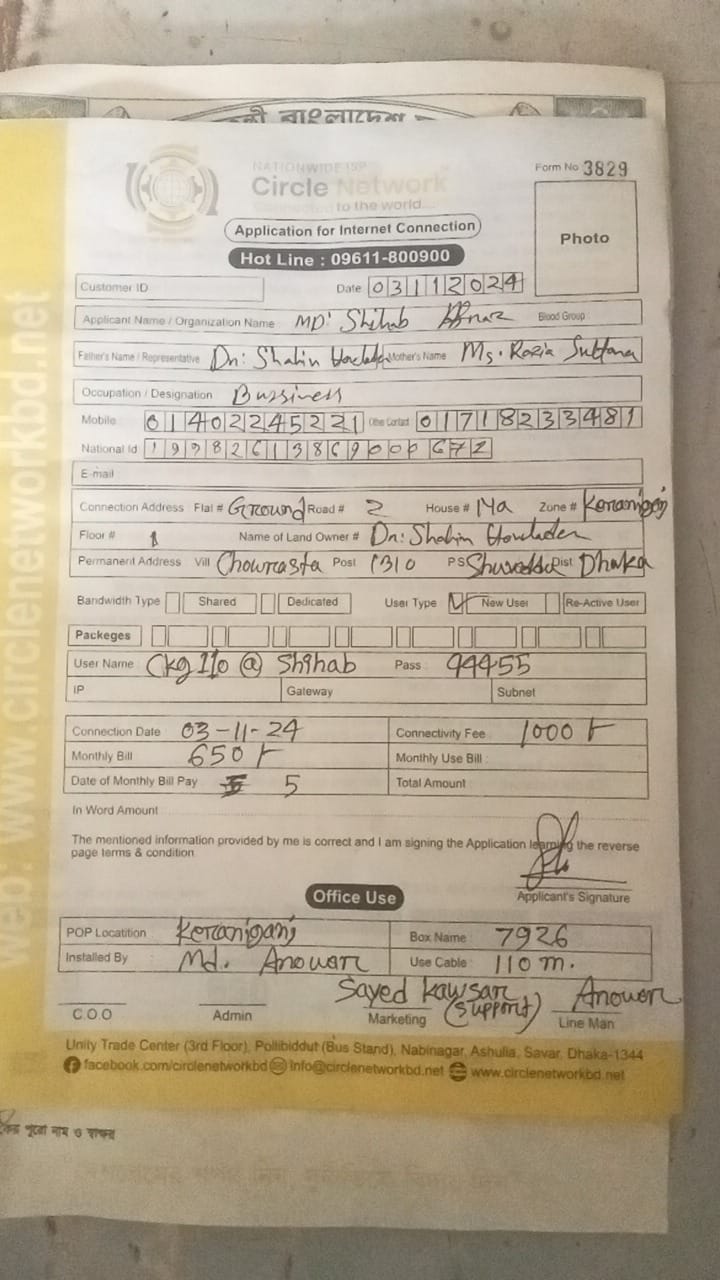 বাংলাদেশ
NATIONWIDE ISP
Form No 3829
Circle Network
to the world....
Application for Internet Connection
Photo
Hot Line : 09611-800900
Customer ID
Date 03112024
Applicant Name / Organization Name MD: Shihab Blood Group
Father's Name / Representative Dn: Shahin Howlader Mother's Name Ms. Razia Sultana
Occupation / Designation Bussiness
Mobile 01402245221 Othe Contact 01718233481
National Id
E-mail
Connection Address Flat # Ground Road # 2 House # 14a Zone # Keraniganj
Floor # 1 Name of Land Owner # Dn: Shahin Howlader
Permanent Address Vill Chowrasta Post 1310 PS Dist Dhaka
Bandwidth Type Shared Dedicated User Type New User Re-Active User
Packeges
User Name @ Shihab Pass 94455
IP Gateway Subnet
Connection Date 03-11-24 Connectivity Fee 1000
Monthly Bill 650 Monthly Use Bill :
Date of Monthly Bill Pay 5 Total Amount
In Word Amount
The mentioned information provided by me is correct and I am signing the Application learning the reverse
page terms & condition
Applicant's Signature
Office Use
POP Locatition Keraniganj Box Name 7926
Installed By Md. Anowar Use Cable 110 m.
Sayed Kawsar (Support) Anowar
C.O.O Admin Marketing Line Man
Unity Trade Center (3rd Floor), Pollibiddut (Bus Stand), Nabinagar, Ashulia, Savar, Dhaka-1344
facebook.com/circlenetworkbd info@circlenetworkbd.net www.circlenetworkbd.net
web: www.circlenetworkbd.net
পুরো নাম ও স্বাক্ষর